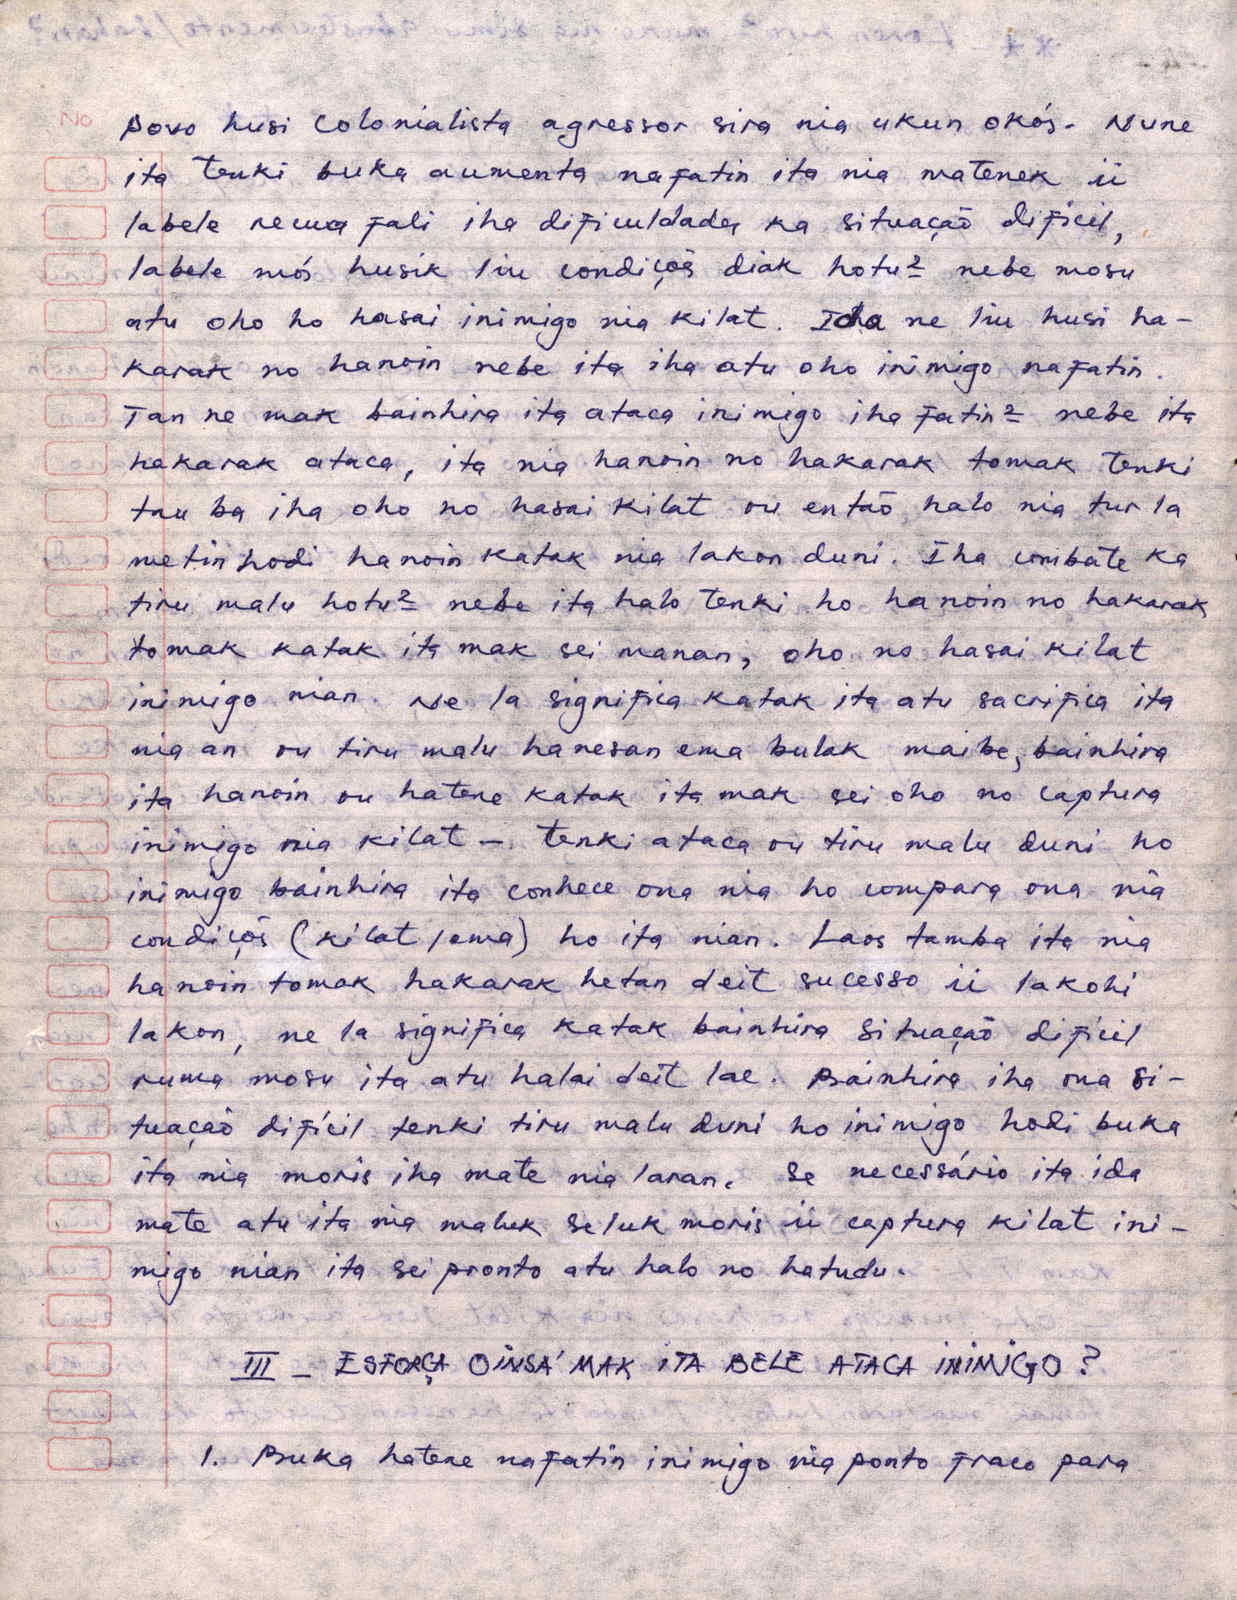 povo husi colonialista agressor sira nia ukun okós. Nune
ita tenki buka aumenta nafatin ita nia matenek ii
labele recua fali iha dificuldades ka situação difícil,
labele mós husik liu condições diak hotu² nebe mosu
atu oho ho hasai inimigo nia kilat. Ida ne liu husi ha-
karak no hanoin nebe ita iha atu oho inimigo nafatin.
Tan ne mak bainhira ita ataca inimigo iha fatin² nebe ita
hakarak ataca, ita nia hanoin no hakarak tomak tenki
tau ba iha oho no hasai kilat ou entaō halo nia tur la
metin hodi hanoin katak nia lakon duni. Iha combate ka
tiru malu hotu² nebe ita halo tenki ho hanoin no hakarak
tomak katak ita mak sei manan, oho no hasai kilat
inimigo nian. Ne la significa katak ita atu sacrifica ita
nia an ou tiru malu hanesan ema bulak maibe, bainhira
ita hanoin ou hatene katak ita mak sei oho no captura
inimigo nia kilat – tenki ataca ou tiru malu duni ho
inimigo bainhira ita conhece ona nia ho compara ona nia
condições (kilat/ema) ho ita nian. Laos tamba ita nia
hanoin tomak hakarak hetan deit sucesso ii lakohi
lakon, ne la significa katak bainhira situação difícil
ruma mosu ita atu halai deit lae. Bainhira iha ona si-
tuação difícil tenki tiru malu duni ho inimigo hodi buka
ita nia moris iha mate nia laran. Se necessário ita ida
mate atu ita nia maluk seluk moris ii captura kilat ini-
migo nian ita sei pronto atu halo no hatudu.
III – ESFORÇA OINSÁ MAK ITA BELE ATACA INIMIGO?
1. Buka hatene nafatin inimigo nia ponto fraco para